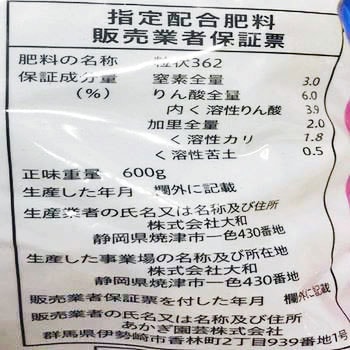 指定配合肥料
販売業者保証票
肥料の名称 粒状362
保証成分量 窒素全量 3.0
(%) りん酸全量 6.0
内く溶性りん酸 3.9
加里全量 2.0
く溶性カリ 1.8
く溶性苦土 0.5
正味重量 600g
生産した年月 欄外に記載
生産業者の氏名又は名称及び住所
株式会社大和
静岡県焼津市一色430番地
生産した事業場の名称及び所在地
株式会社大和
静岡県焼津市一色430番地
販売業者保証票を付した年月 欄外に記載
販売業者の氏名又は名称及び住所
あかぎ園芸株式会社
群馬県伊勢崎市香林町2丁目939番地1号